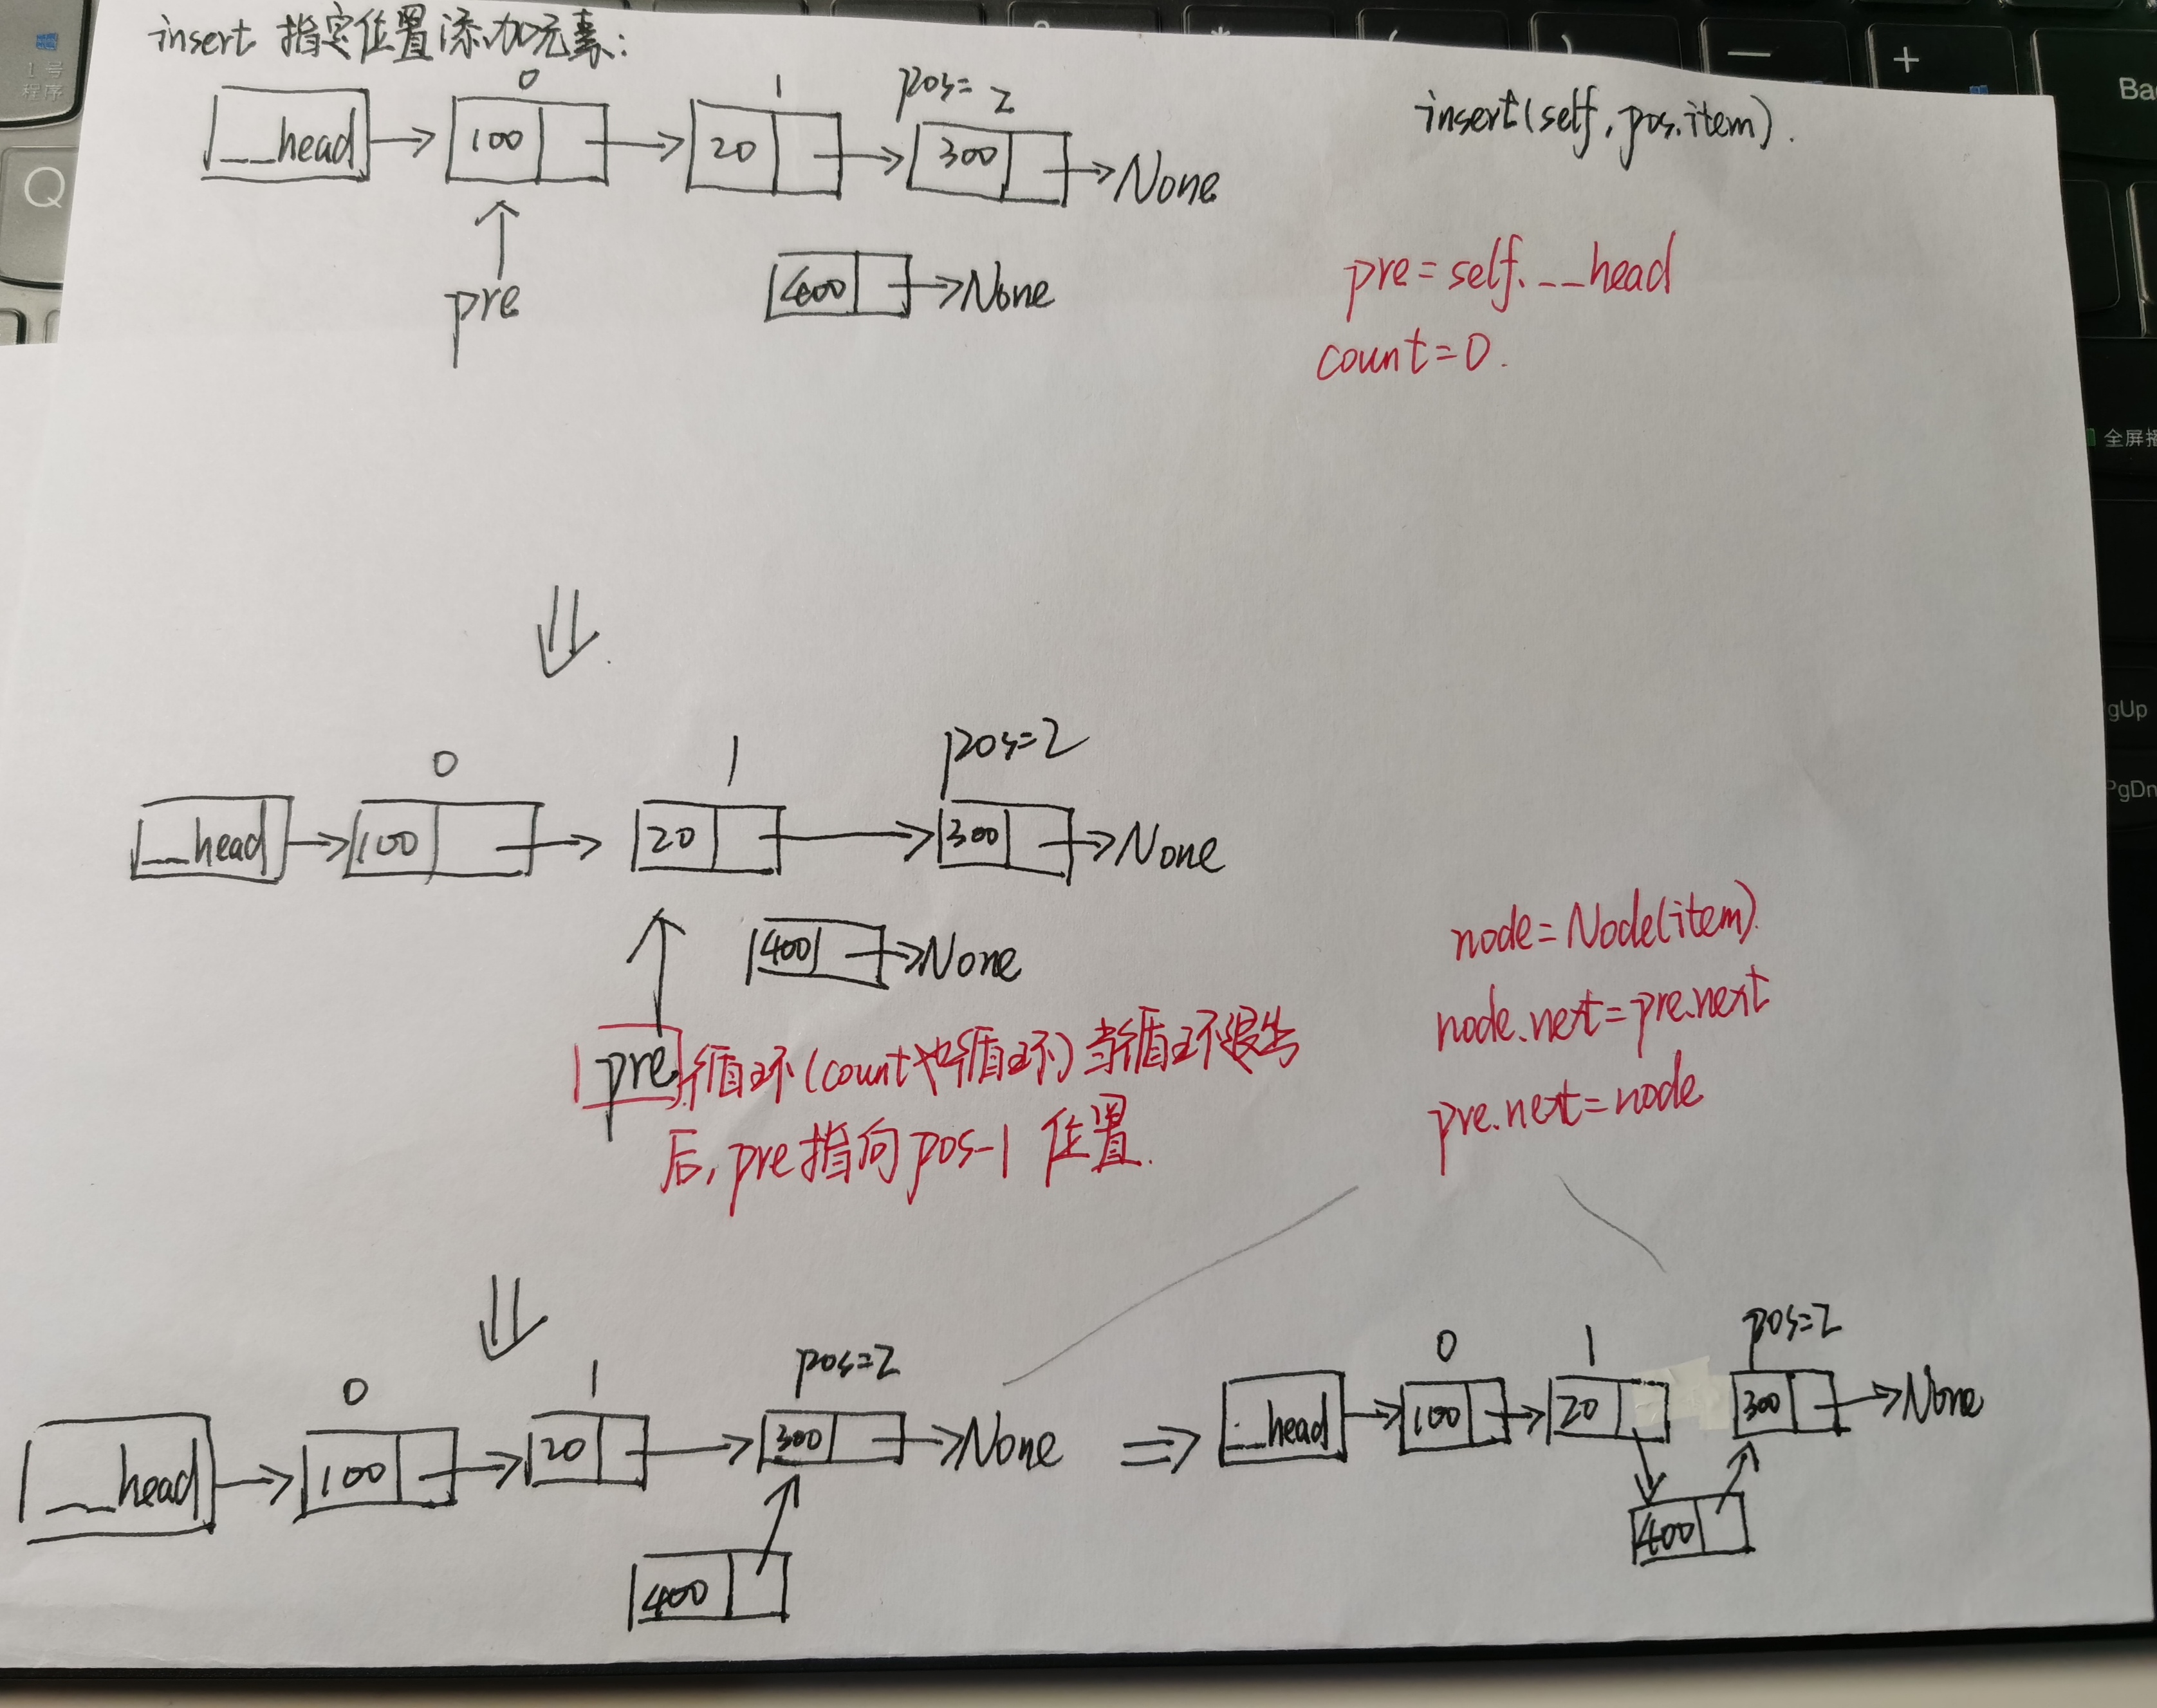 insert 指定位置添加元素:
0 1 pos=2
__head 100 20 300 None
insert(self, pos.item).
pre
400 None
pre=self.__head
count=0.
0 1 pos=2
__head 100 20 300 None
400 None
pre 循环(count也循环)当循环退出
后, pre指向pos-1 位置.
node=Node(item).
node.next=pre.next
pre.next=node
0 1 pos=2
__head 100 20 300 None
400
0 1 pos=2
__head 100 20 300 None
400
Q
1号
程序
+
Ba
全屏播
gUp
PgDn